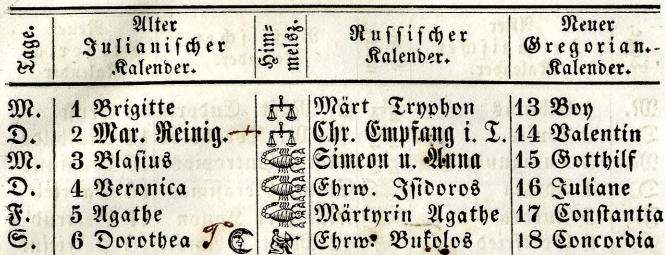 Tage. Alter Julianischer Kalender. Himmelsz. Russischer Kalender. Neuer Gregorian. Kalender.
M. 1 Brigitte Märt Tryphon 13 Boy
D. 2 Mar. Reinig. Chr. Empfang i. T. 14 Valentin
M. 3 Blasius Simeon u. Anna 15 Gotthilf
D. 4 Veronica Ehrw. Isidoros 16 Juliane
F. 5 Agathe Märtyrin Agathe 17 Constantia
S. 6 Dorothea Ehrw. Bukolos 18 Concordia